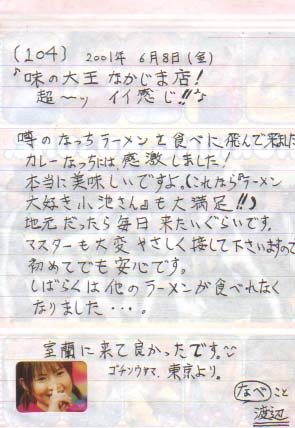 (104) 2001年 6月8日(金)
♪味の大王 なかじま店!
超〜ッ イイ感じ!!な
噂のなっちラーメンを食べに飛んで来ました
カレーなっちには、感激しました!
本当に美味しいですよ。(これなら『ラーメン
大好き小池さん』も大満足!!)
地元だったら毎日来たいぐらいです。
マスターも大変やさしく接して下さいますので
初めてでも安心です。
しばらくは他のラーメンが食べれなく
なりました・・・。
室蘭に来て良かったです。
ゴチンウサマ、東京より。
なべ こと
渡辺